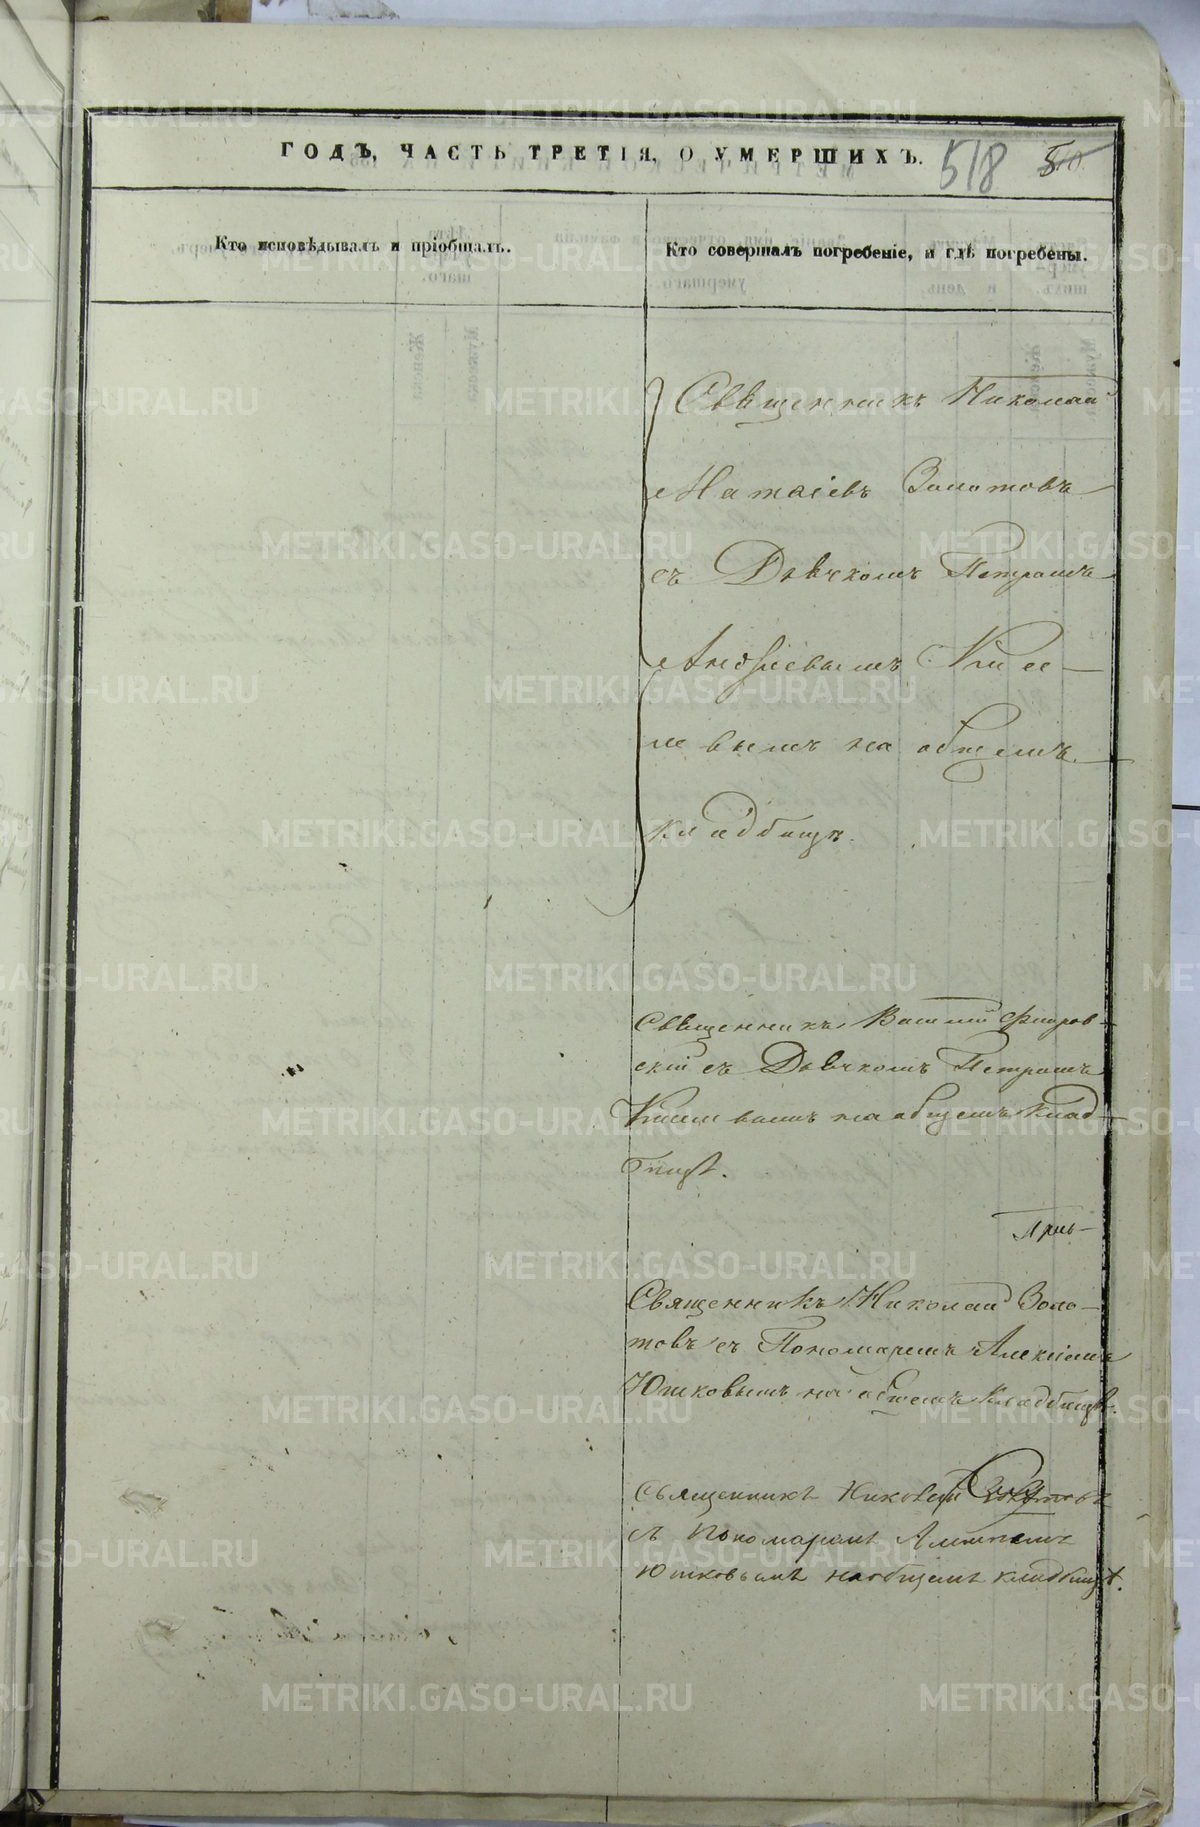 ГОДЪ, ЧАСТЬ ТРЕТІЯ, О УМЕРШИХЪ.
518
Кто исповѣдывалъ и пріобщалъ.
Кто совершалъ погребеніе, и гдѣ погребены.
Священникъ Николай
Матвіевъ Золотовъ
съ Дьячкомъ Петромъ
Андріевымъ
вымъ на общемъ
кладбищѣ.
Священникъ Василій Флоров-
скій съ Дьячкомъ Петромъ
на общемъ клад-
бищѣ.
Священникъ Николай Золо-
товъ съ Пономаремъ Алексіемъ
Юшковымъ на общемъ кладбищѣ.
Священникъ Николай Золотовъ
съ Пономаремъ
Юшковымъ на общемъ кладбищѣ.
METRIKI.GASO-URAL.RU